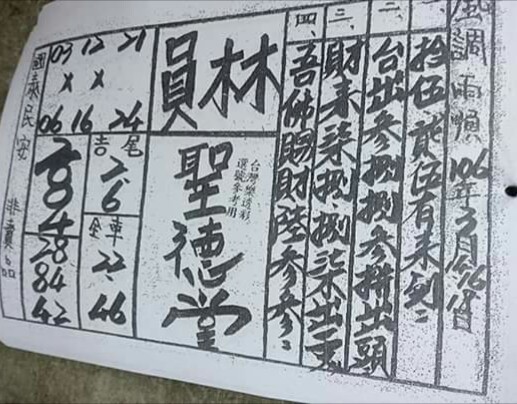 風調雨順 106年3月
一、拾伍貳伍有未到
二、台出參捌捌參拼出頭
三、財來柒捌捌柒本出一重
四、吾佛賜財陸參參
林員
台灣樂透彩
選號參考用
聖德堂
03 12 21
X X
06 16 24
尾吉
2.6
284
車金
22
46
28
84
42
國泰民安 非賣品